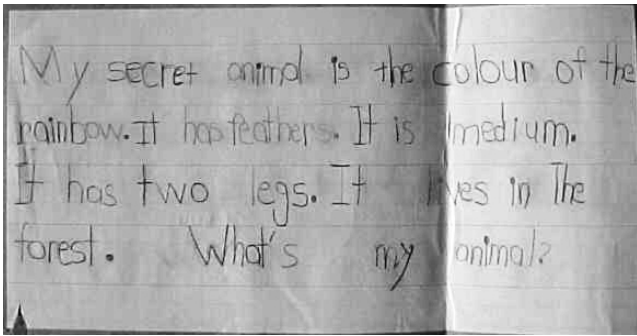 My secret animal is the colour of the
rainbow. It has feathers. It is medium.
It has two legs. It lives in The
forest. What's my animal?